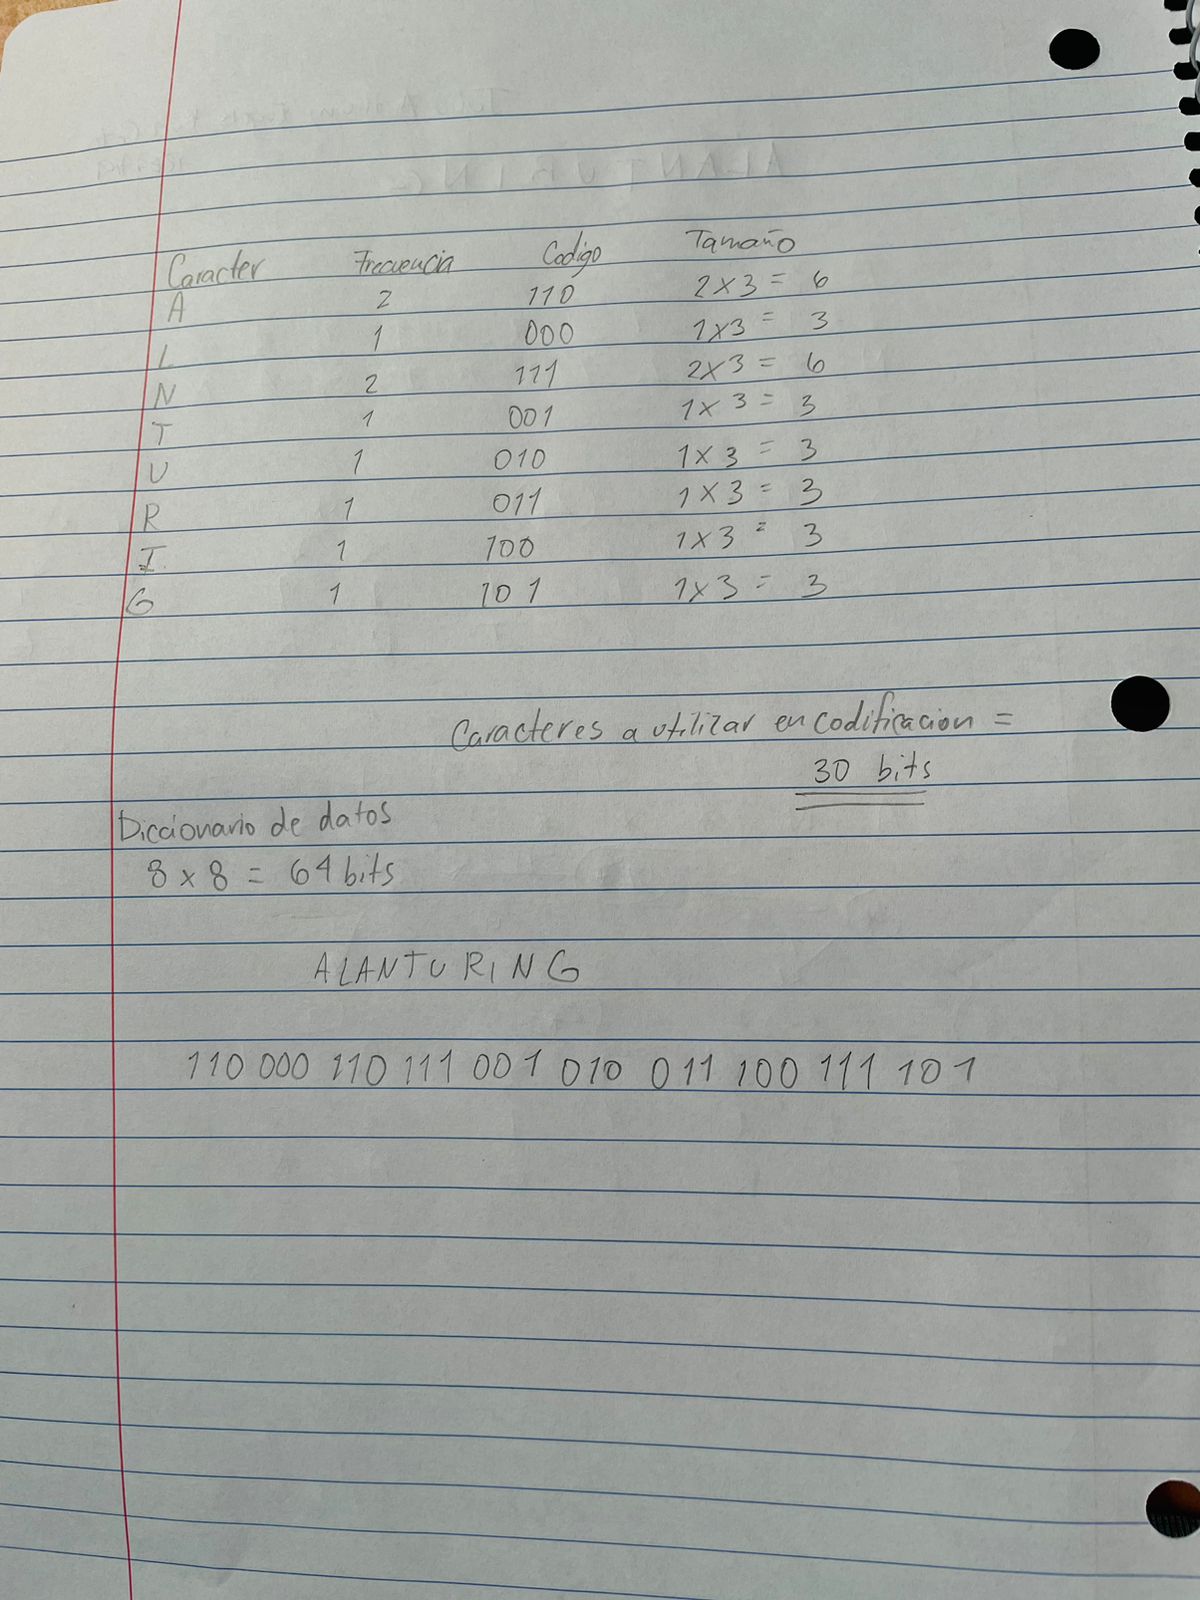 ALANTURING
Caracter Frecuencia Codigo Tamaño
A 2 110 2x3 = 6
L 1 000 1x3 = 3
N 2 111 2x3 = 6
T 1 001 1x3 = 3
U 1 010 1x3 = 3
R 1 011 1x3 = 3
I 1 100 1x3 = 3
G 1 101 1x3 = 3
Caracteres a utilizar en codificacion =
30 bits
Diccionario de datos
8 x 8 = 64 bits
ALANTURING
110 000 110 111 001 010 011 100 111 101